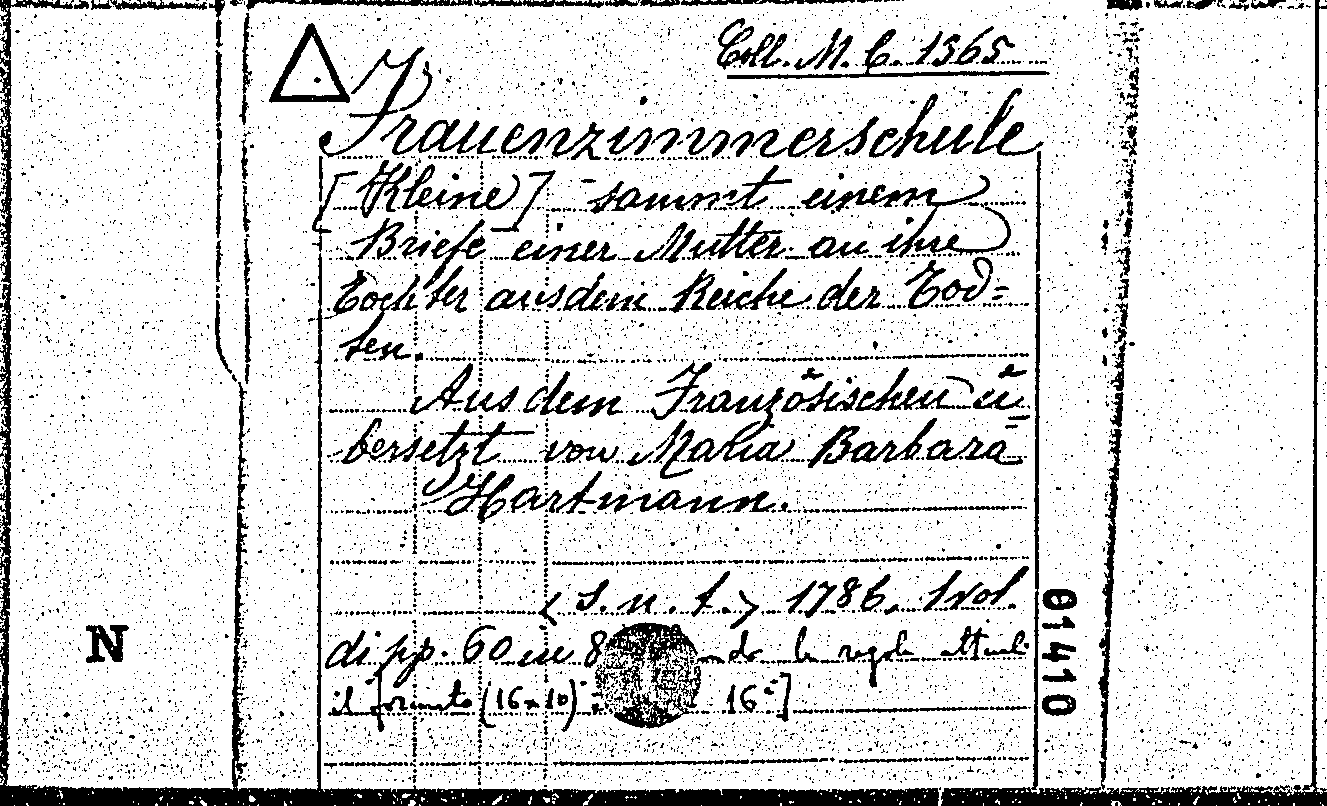 Coll. M. C. 1565
Frauenzimmerschule
[Kleine] - sammt einem
Briefe einer Mutter an ihre
Tochter aus dem Reiche der Tod=
ten.
Aus dem Französischen ü=
bersetzt von Maria Barbara
Hartmann.
< s. n. t. > 1786, 1 vol.
di pp. 60 in 8 le regole attuali
il formato (16x10) 16°]
N
01410